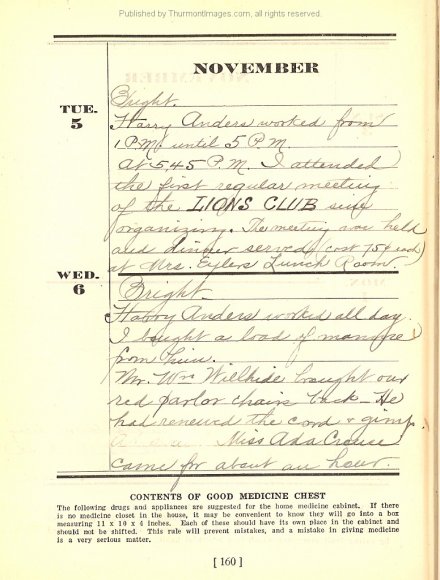 Published by ThurmontImages.com, all rights reserved.
NOVEMBER
TUE.
5
Bright.
Harry Anders worked from
1 P.M. until 5 P.M.
At 5.45 P.M. I attended
the first regular meeting
of the LIONS CLUB since
organizing. The meeting was held
and dinner served, cost 75¢ each
at Mrs. Eylers Lunch Room.
WED.
6
Bright.
Harry Anders worked all day.
I bought a load of manure
from him.
Mr. Wm Willhide brought our
red parlor chairs back - He
had renewed the cord & gimp
Miss Ada Crouse
came for about an hour.
CONTENTS OF GOOD MEDICINE CHEST
The following drugs and appliances are suggested for the home medicine cabinet. If there
is no medicine closet in the house, it may be convenient to know they will go into a box
measuring 11 x 10 x 4 inches. Each of these should have its own place in the cabinet and
should not be shifted. This rule will prevent mistakes, and a mistake in giving medicine
is a very serious matter.
[ 160 ]